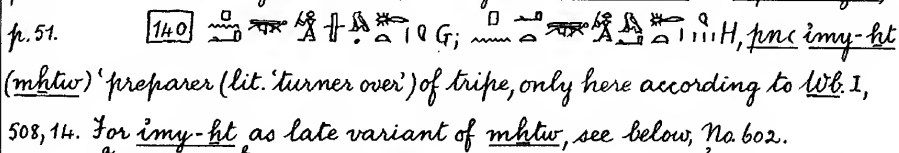 p. 51. 140 G; H, pnꜥ imy-ḫt
(mḫtw) 'preparer (lit. 'turner over') of tripe, only here according to Wb. I,
508, 14. For imy-ḫt as late variant of mḫtw, see below, No. 602.